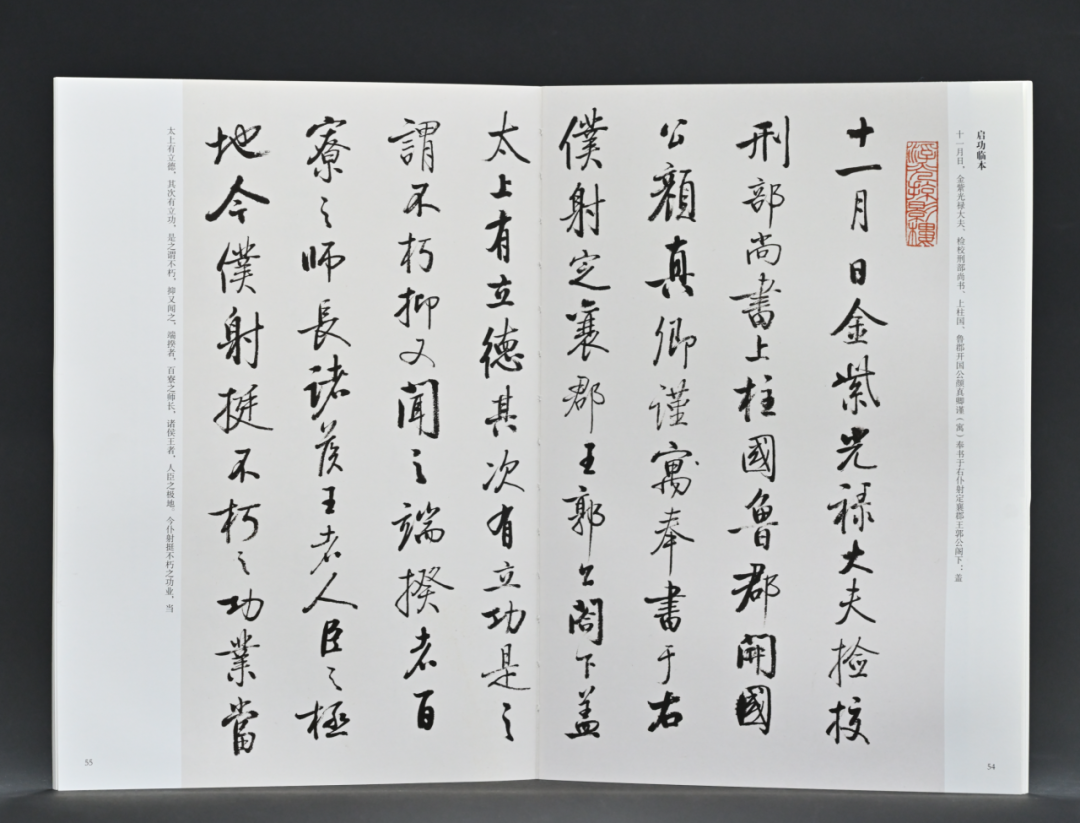 启功临本
十一月日，金紫光禄大夫、检校刑部尚书、上柱国、鲁郡开国公颜真卿谨（寓）奉书于右仆射定襄郡王郭公阁下：盖
十一月日金紫光禄大夫捡挍
刑部尚書上柱國魯郡開國
公顏真卿謹寓奉書于右
僕射定襄郡王郭公閣下盖
54
太上有立德其次有立功是之
謂不朽抑又聞之端揆者百
寮之師長諸侯王者人臣之極
地今僕射挺不朽之功業當
太上有立德，其次有立功，是之谓不朽，抑又闻之，端揆者，百寮之师长，诸侯王者，人臣之极地，今仆射挺不朽之功业，当
55